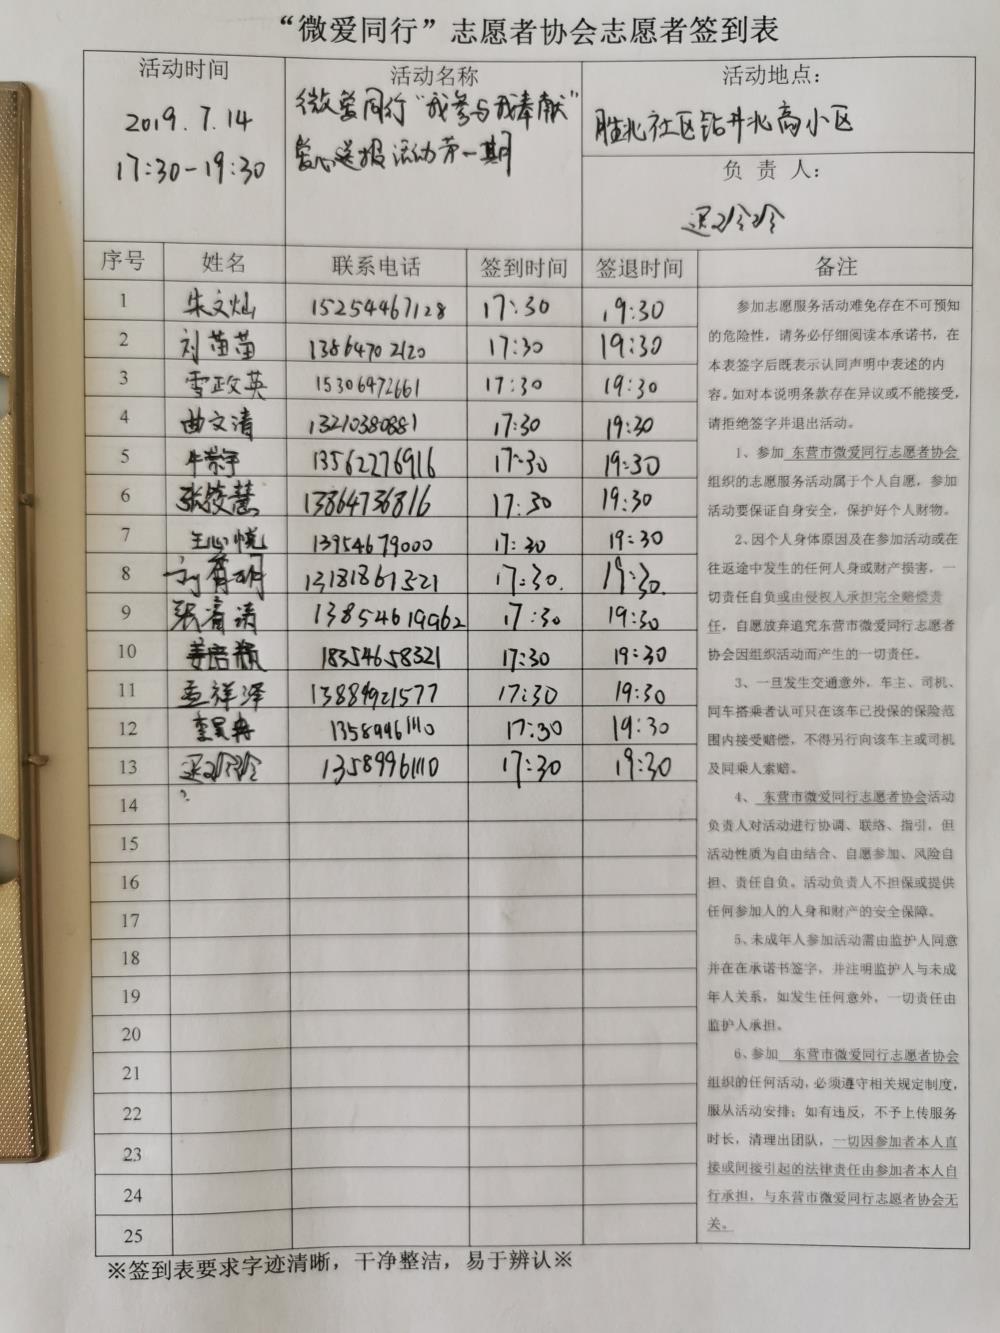 “微爱同行”志愿者协会志愿者签到表
活动时间
2019.7.14
17:30-19:30
活动名称
微爱同行“我参与我奉献”
爱心送报活动第一期
活动地点:
胜北社区钻井北高小区
负责人:
迟玲玲
序号 姓名 联系电话 签到时间 签退时间 备注
1 朱文灿 15254467128 17:30 19:30
2 刘苗苗 13864702120 17:30 19:30
3 雪政英 15306472661 17:30 19:30
4 曲文清 13210380881 17:30 19:30
5 牛崇宇 13562276916 17:30 19:30
6 张筱慧 13864736816 17:30 19:30
7 王心悦 13954679000 17:30 19:30
8 13181861321 17:30. 19:30.
9 张睿清 13854619962 17:30 19:30
10 18354658321 17:30 19:30
11 孟祥泽 13884921577 17:30 19:30
12 李昊冉 13589961110 17:30 19:30
13 迟玲玲 13589961110 17:30 19:30
14
15
16
17
18
19
20
21
22
23
24
25
参加志愿服务活动难免存在不可预知
的危险性，请务必仔细阅读本承诺书，在
本表签字后既表示认同声明中表述的内
容。如对本说明条款存在异议或不能接受，
请拒绝签字并退出活动。
1、参加 东营市微爱同行志愿者协会
组织的志愿服务活动属于个人自愿，参加
活动要保证自身安全，保护好个人财物。
2、因个人身体原因及在参加活动或在
往返途中发生的任何人身或财产损害，一
切责任自负或由侵权人承担完全赔偿责
任，自愿放弃追究东营市微爱同行志愿者
协会因组织活动而产生的一切责任。
3、一旦发生交通意外，车主、司机、
同车搭乘者认可只在该车已投保的保险范
围内接受赔偿，不得另行向该车主或司机
及同乘人索赔。
4、 东营市微爱同行志愿者协会活动
负责人对活动进行协调、联络、指引，但
活动性质为自由结合、自愿参加、风险自
担、责任自负。活动负责人不担保或提供
任何参加人的人身和财产的安全保障。
5、未成年人参加活动需由监护人同意
并在在承诺书签字，并注明监护人与未成
年人关系，如发生任何意外，一切责任由
监护人承担。
6、参加 东营市微爱同行志愿者协会
组织的任何活动，必须遵守相关规定制度，
服从活动安排；如有违反，不予上传服务
时长，清理出团队，一切因参加者本人直
接或间接引起的法律责任由参加者本人自
行承担，与东营市微爱同行志愿者协会无
关。
※签到表要求字迹清晰，干净整洁，易于辨认※